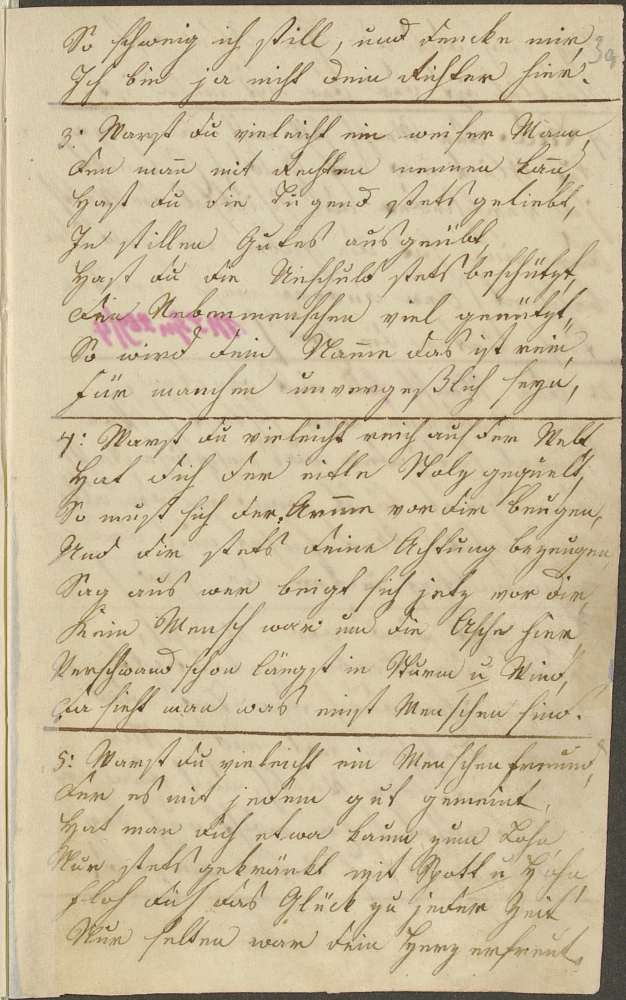 So schweig ich still, und dencke mir,
Ich bin ja nicht dein Richter hier.
3: Warst du vieleicht ein weiser Mann,
den man mit Rechten nennen kan̄,
Hast du die Tugend stets geliebt,
In stillen Gutes ausgeübt,
Hast du die Unschuld stets beschützt,
den Nebenmenschen viel genützt,
So wird dein Namme das ist rein,
für manchen unvergeßlich seyn,
4: Warst du vieleicht reich auf der Welt,
Hat dich der eitle Stolz gequelt,
So must sich der Armme vor dir beugen,
Und dir stets seine Achtung bezeugen
Sag aus wer beigt sich jetz vor dir,
Kein Mensch war um die Asche hier
Verschwand schon längst in Sturm u Wind,
Da sieht man was einst Menschen sind.
5: Warst du vieleicht ein Menschenfreund,
der es mit jedem gut gemeint,
Hat man dich etwa kaum zum Lohn
Nur stets gekränkt mit Spott u Hohn
floh dich das Glück zu jeder Zeit
Nur selten war dein Herz erfreut.